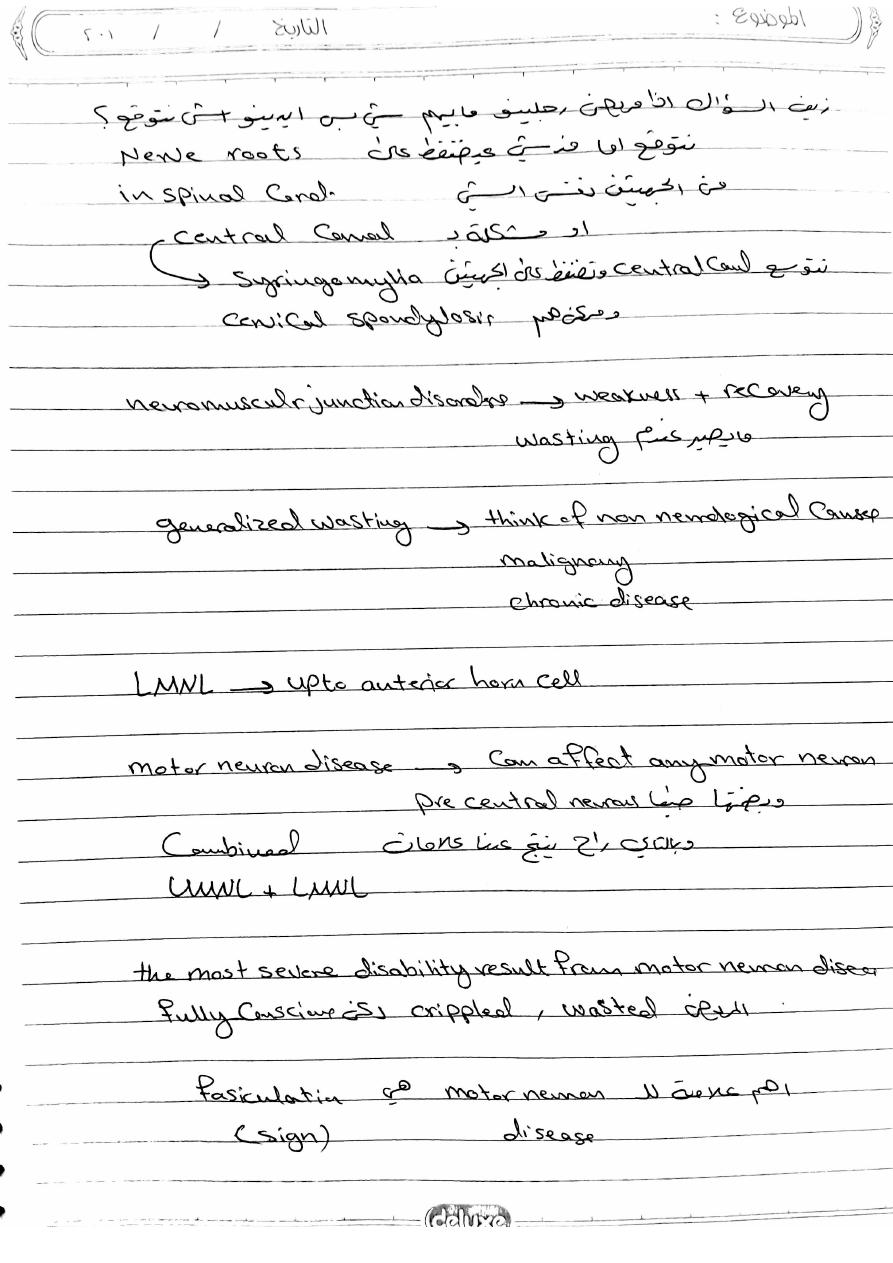 الموضوع :
التاريخ / / ٢٠١
زيف السؤال اذا مريض رجلينو مابيهم شي بس ايدينو اش نتوقع ؟
نتوقع اما في شي عيضغط على Nerve roots
من الجهتين نفس الشي in spinal Cord.
او مشكلة بـ central Canal
نتوسع central Canal وتضغط على الجهتين Syringomylia
وممكن هم cervical spondylosis
neuromusculr junction disorders → weakness + recovery
مايصير عندهم wasting
generalized wasting → think of non neurological Causes
malignancy
chronic disease
LMNL → upto anterior horn cell
motor neuron disease → Can affect any motor neuron
وبضمنها pre central neurons
وبالتالي راح ينتج عنا علامات Combined
UMNL + LMNL
the most severe disability result from motor neuron diseas
المريض wasted , crippled ولكن fully Conscious
اهم علامة لـ motor neuron هي fasiculation
disease (sign)
deluxe